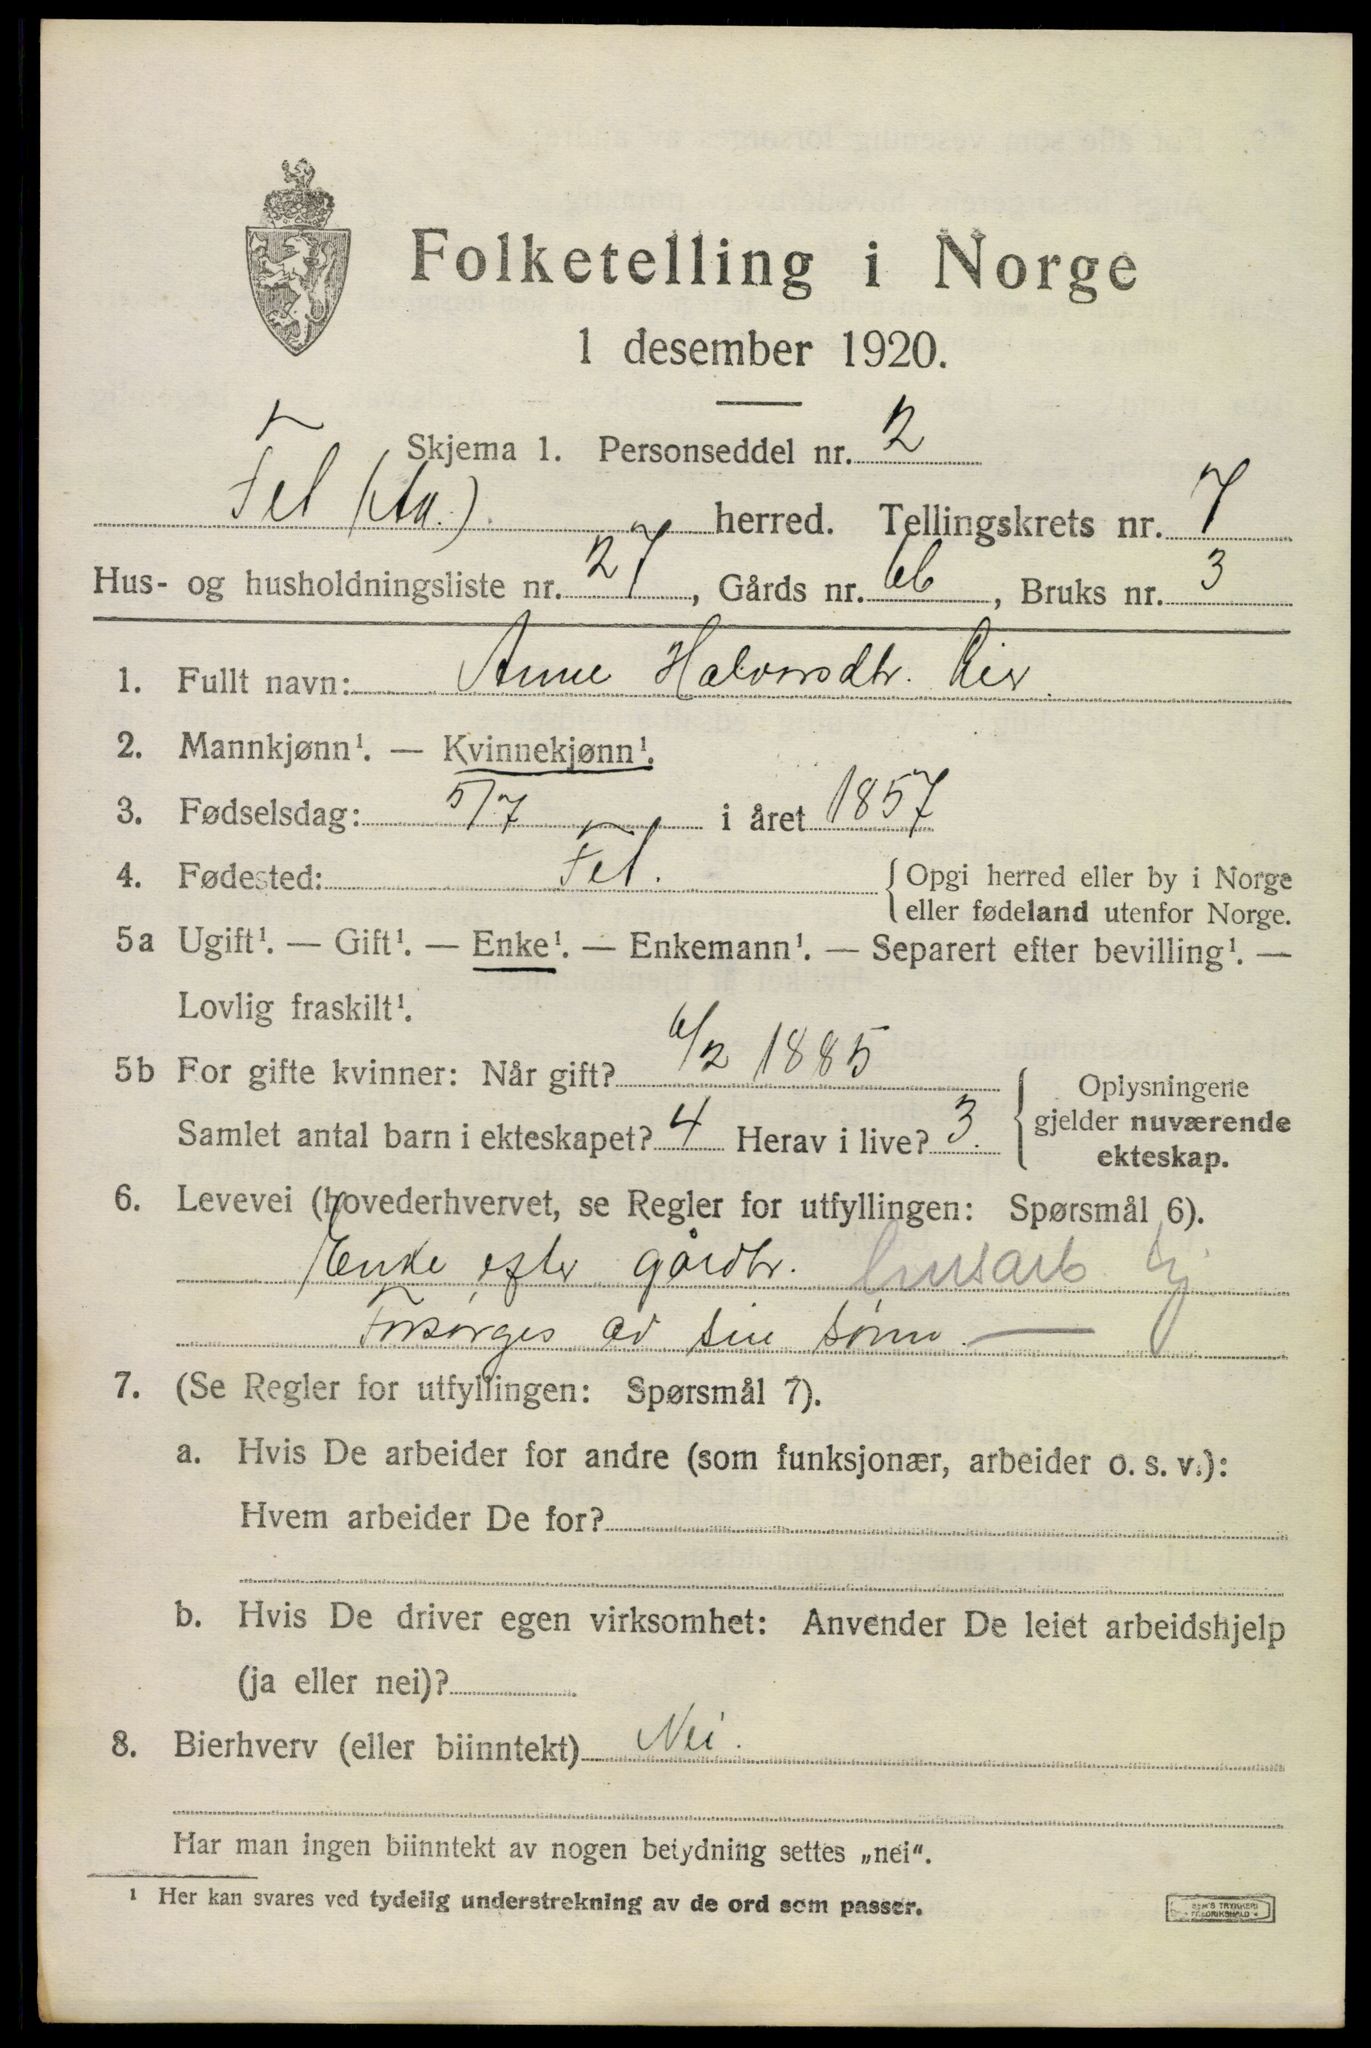 Folketelling i Norge
1 desember 1920.
Skjema 1. Personseddel nr. 2
Fet (Aa.) herred. Tellingskrets nr. 7
Hus- og husholdningsliste nr. 27, Gårds nr. 66, Bruks nr. 3
1. Fullt navn: Anne Halvorsdtr. Lier
2. Mannkjønn¹. — Kvinnekjønn¹.
3. Fødselsdag: 5/7 i året 1857
4. Fødested: Fet. { Opgi herred eller by i Norge
eller fødeland utenfor Norge.
5a Ugift¹. — Gift¹. — Enke¹. — Enkemann¹. — Separert efter bevilling¹. —
Lovlig fraskilt¹.
5b For gifte kvinner: Når gift? 6/2 1885
Samlet antal barn i ekteskapet? 4 Herav i live? 3.
{ Oplysningene
gjelder nuværende
ekteskap.
6. Levevei (hovederhvervet, se Regler for utfyllingen: Spørsmål 6).
Enke efter gårdbr. husarb
Forsørges av sin sønn. —
7. (Se Regler for utfyllingen: Spørsmål 7).
a. Hvis De arbeider for andre (som funksjonær, arbeider o. s. v.):
Hvem arbeider De for?
b. Hvis De driver egen virksomhet: Anvender De leiet arbeidshjelp
(ja eller nei)?
8. Bierhverv (eller biinntekt) Nei.
Har man ingen biinntekt av nogen betydning settes „nei“.
¹ Her kan svares ved tydelig understrekning av de ord som passer.